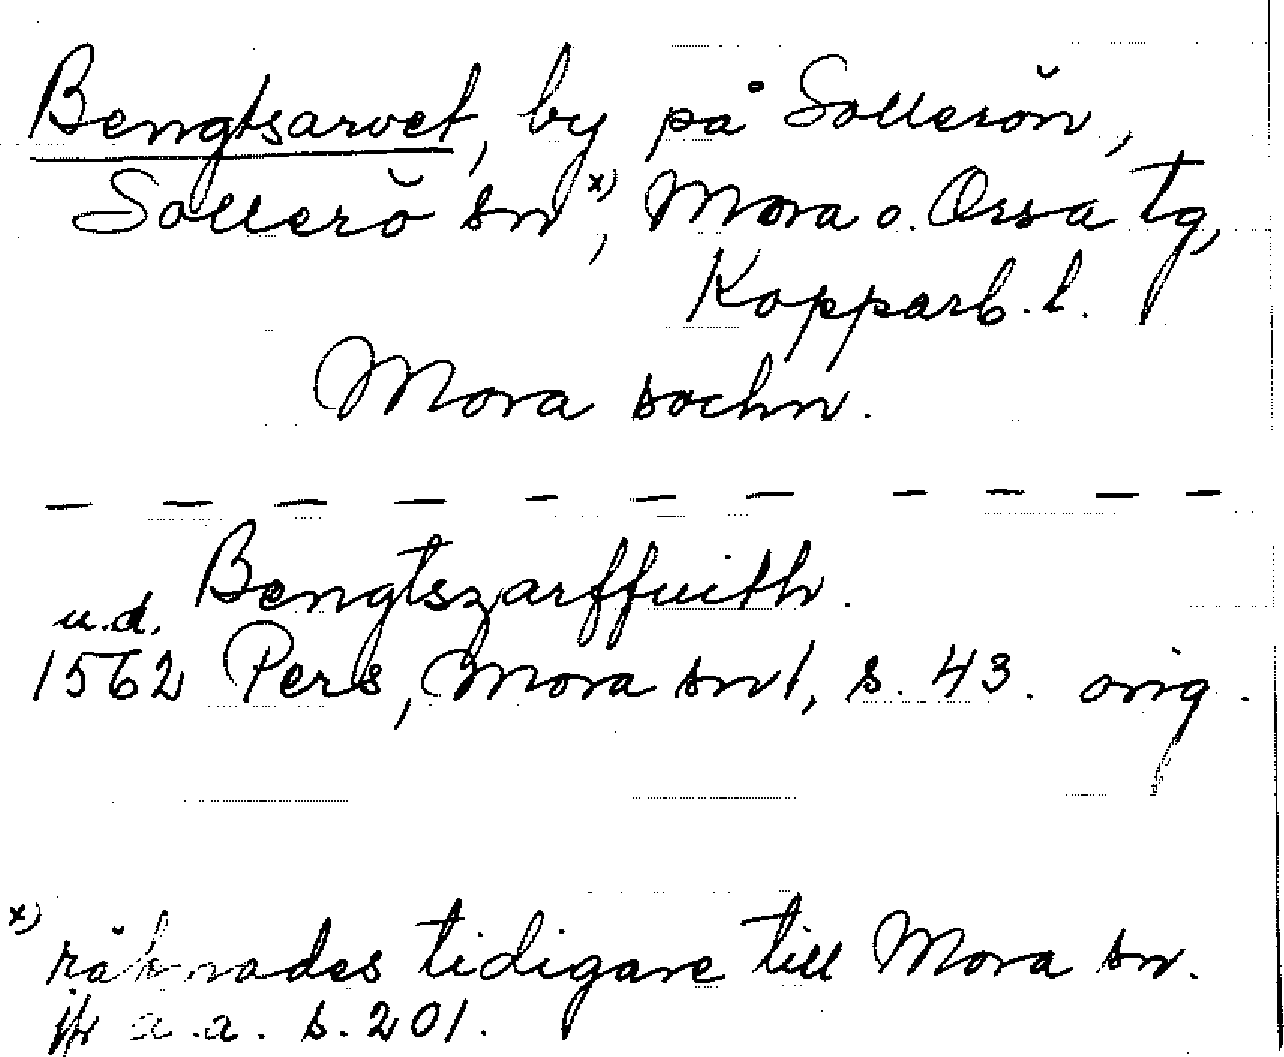 Bengtsarvet, by på Sollerön,
Sollerö sn x), Mora o. Orsa tg,
Kopparb. l.
Mora sochn.
— — — — — — — — — — —
Bengtszarffuith.
u.d.
1562 Pers, Mora snt, s. 43. orig.
x) räknades tidigare till Mora sn.
jfr a.a. s. 201.